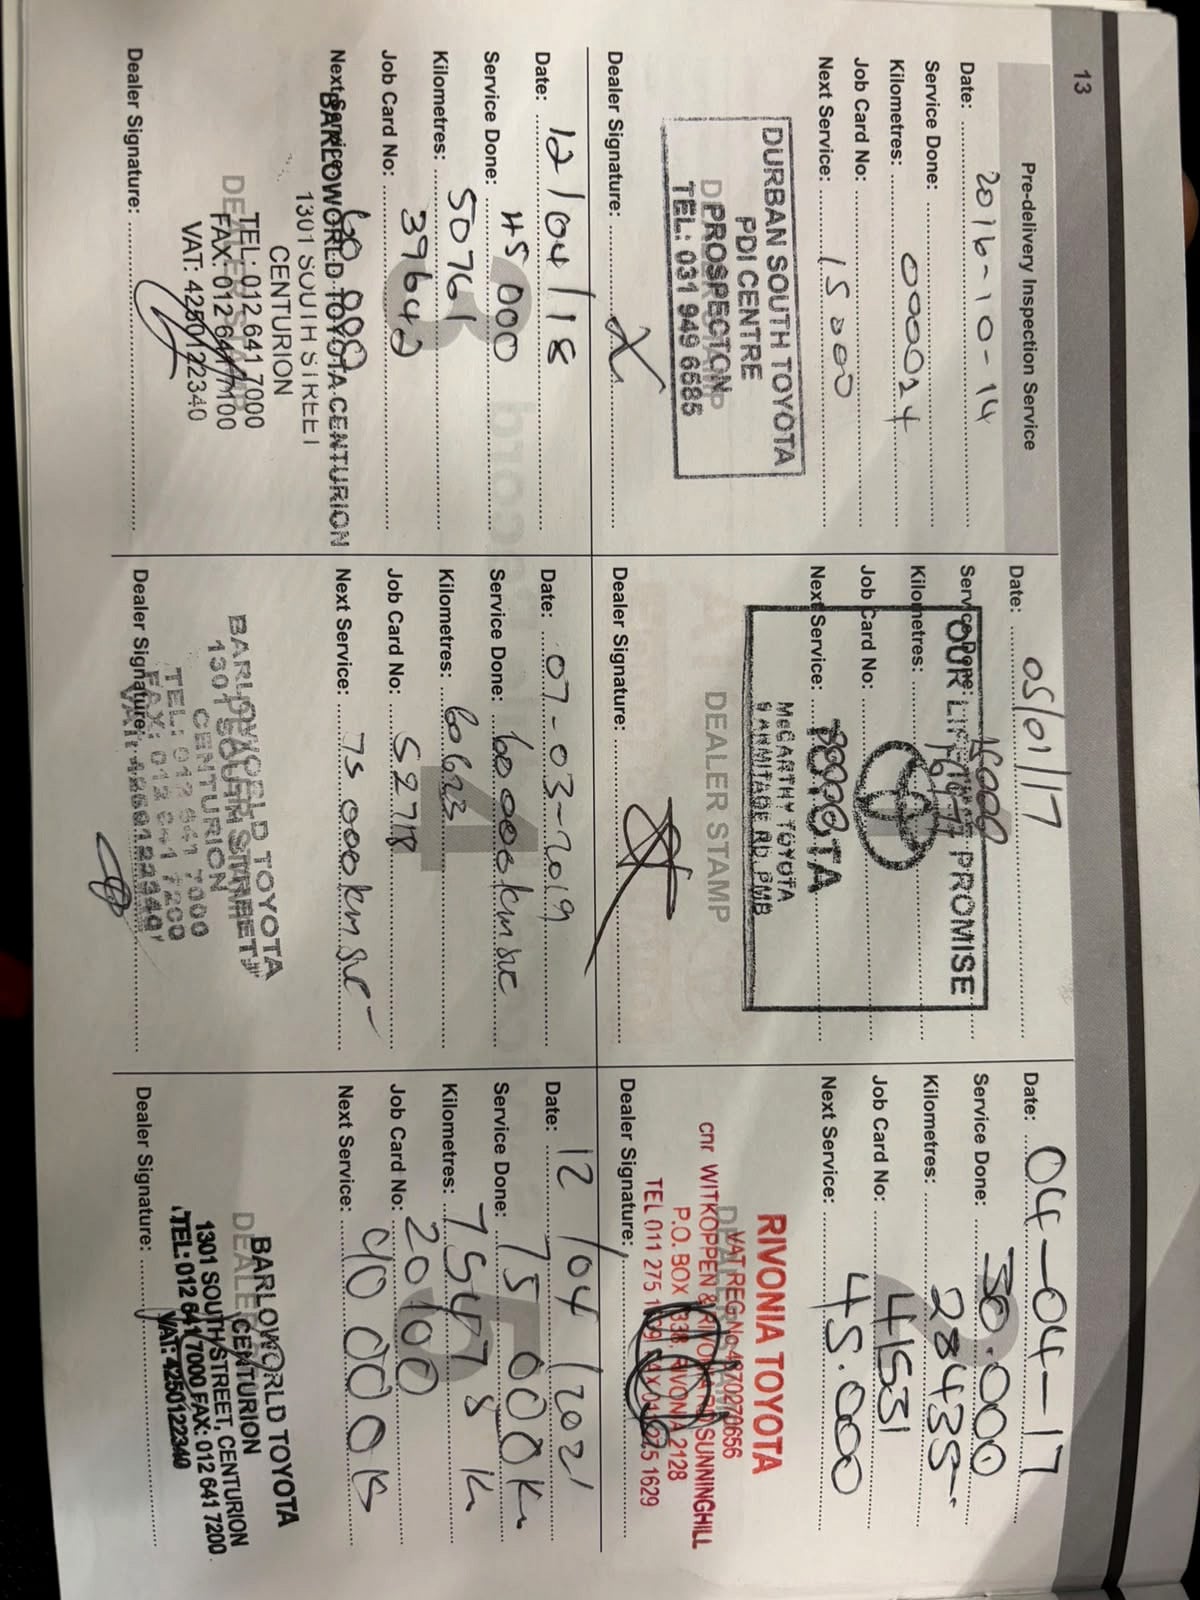 13
Pre-delivery Inspection Service
Date: 2016-10-14
Service Done:
Kilometres: 000024
Job Card No:
Next Service: 15000
DURBAN SOUTH TOYOTA
PDI CENTRE
PROSPECTON
TEL: 031 949 6585
Dealer Signature:
Date: 05/01/17
Service Done: 15000
OUR PROMISE
Kilometres:
Job Card No:
Next Service:
McCARTHY TOYOTA
ARMITAGE RD. PMB
DEALER STAMP
Dealer Signature:
Date: 04-04-17
Service Done: 30.000
Kilometres: 28435
Job Card No: 41531
Next Service: 45.000
RIVONIA TOYOTA
VAT REG No
cnr WITKOPPEN & SUNNINGHILL
P.O. BOX RIVONIA 2128
TEL 011 275 1629
Dealer Signature:
Date: 12/04/18
3
Service Done: 45 000
Kilometres: 50761
Job Card No: 39642
Next Service: 60 000
BARLOWORLD TOYOTA CENTURION
1301 SOUTH STREET
CENTURION
TEL: 012 641 7000
FAX: 012 641 7100
VAT: 4250122340
Dealer Signature:
Date: 07-03-2019
4
Service Done: 60 000km svc
Kilometres: 60623
Job Card No: 52718
Next Service: 75 000km svc
BARLOWORLD TOYOTA
1301 SOUTH STREET
CENTURION
TEL: 012 641 7000
FAX: 012 641 7200
Dealer Signature:
Date: 12/04/2021
5
Service Done: 75 000K
Kilometres: 75478 K
Job Card No: 20100
Next Service: 90 000
BARLOWORLD TOYOTA
CENTURION
1301 SOUTH STREET, CENTURION
TEL: 012 641 7000 FAX: 012 641 7200
VAT: 4250122340
Dealer Signature: